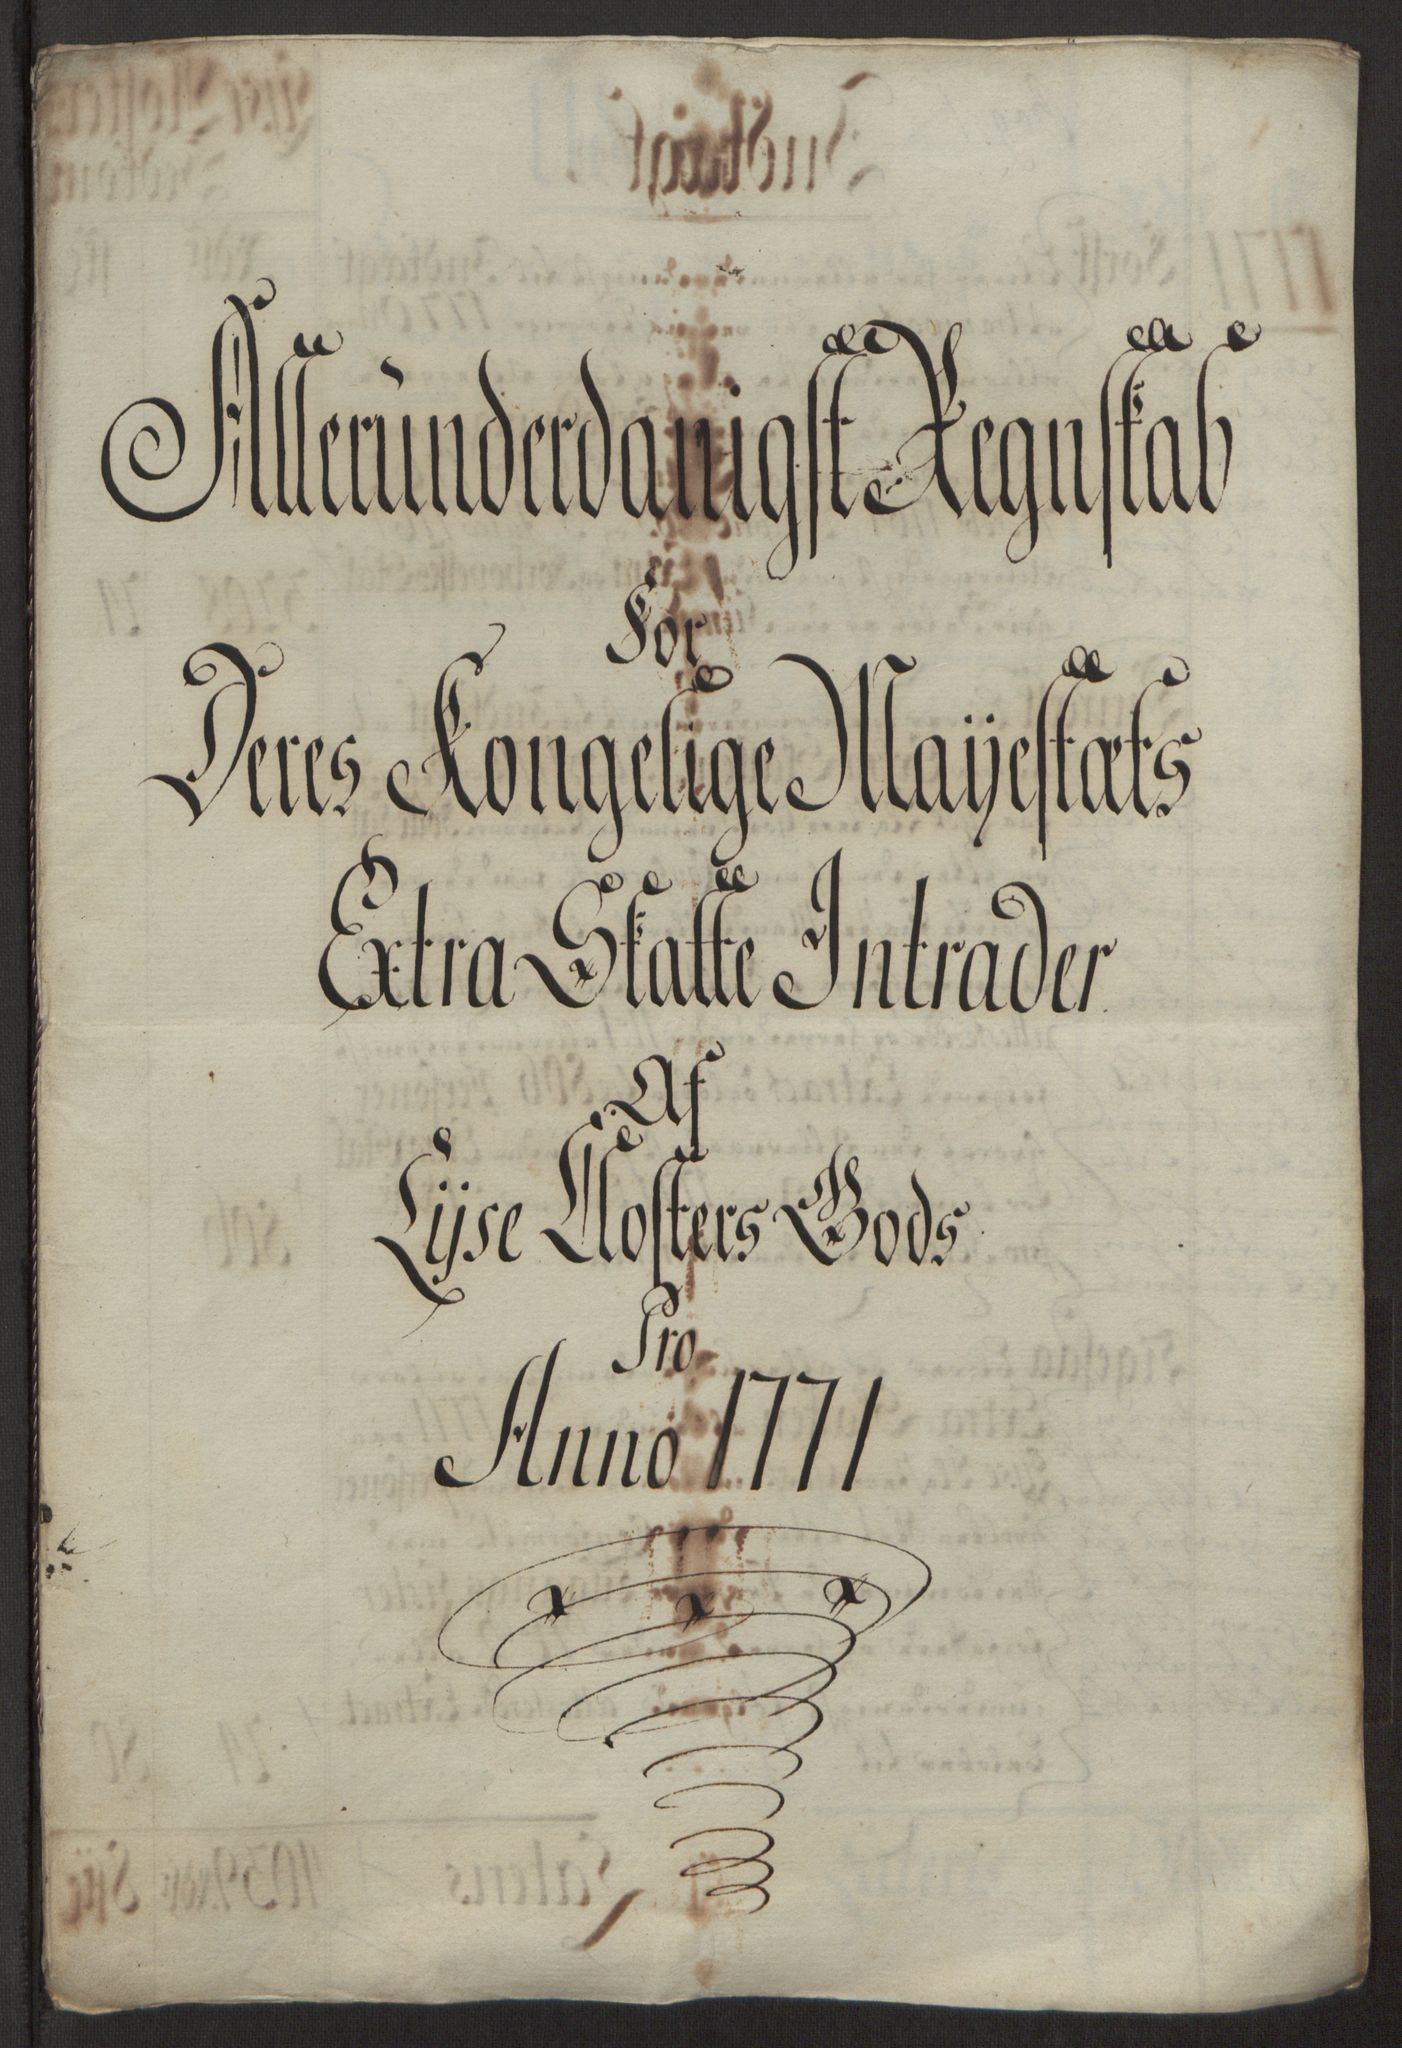 Alleründerdanigst Regnskab
For
Deres Kongelige Mayestæts
Extra Skatte Intrader
Af
Lÿse Closters Gods
Pro
Anno 1771